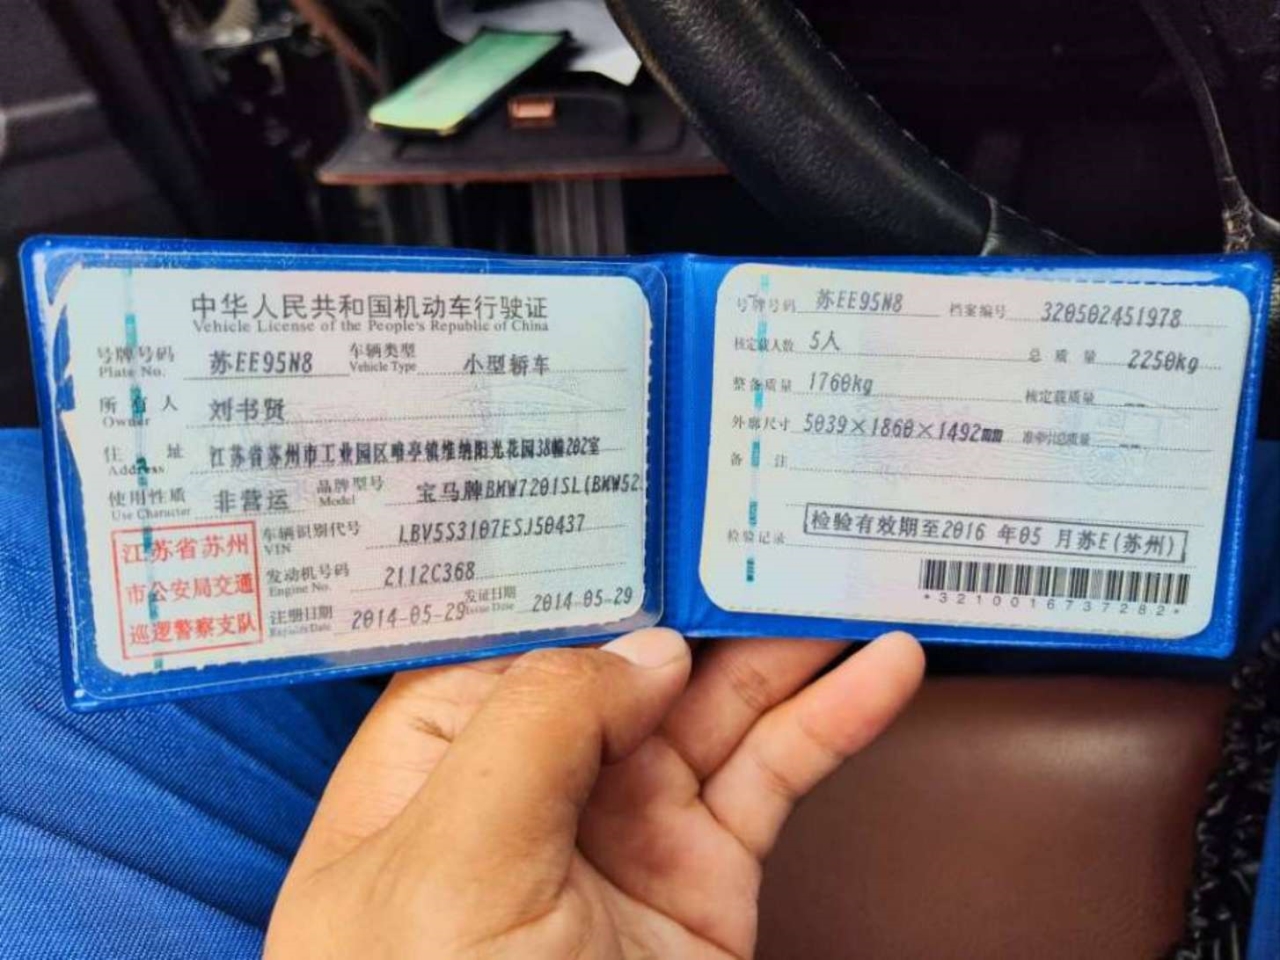 中华人民共和国机动车行驶证
Vehicle License of the People's Republic of China
号牌号码 苏EE95N8 车辆类型 小型轿车
Plate No. Vehicle Type
所有人 刘书贤
Owner
住址 江苏省苏州市工业园区唯亭镇维纳阳光花园38幢202室
Address
使用性质 非营运 品牌型号 宝马牌BMW7201SL(BMW52
Use Character Model
江苏省苏州
市公安局交通
巡逻警察支队
车辆识别代号 LBV5S3107ESJ50437
VIN
发动机号码 2112C368
Engine No.
注册日期 2014-05-29 发证日期 2014-05-29
Register Date Issue Date
号牌号码 苏EE95N8 档案编号 320502451978
核定载人数 5人 总质量 2250kg
整备质量 1760kg 核定载质量 --
外廓尺寸 5039×1860×1492 准牵引总质量 --
备注
检验记录 检验有效期至2016 年05 月苏E(苏州)
*3210016737282*